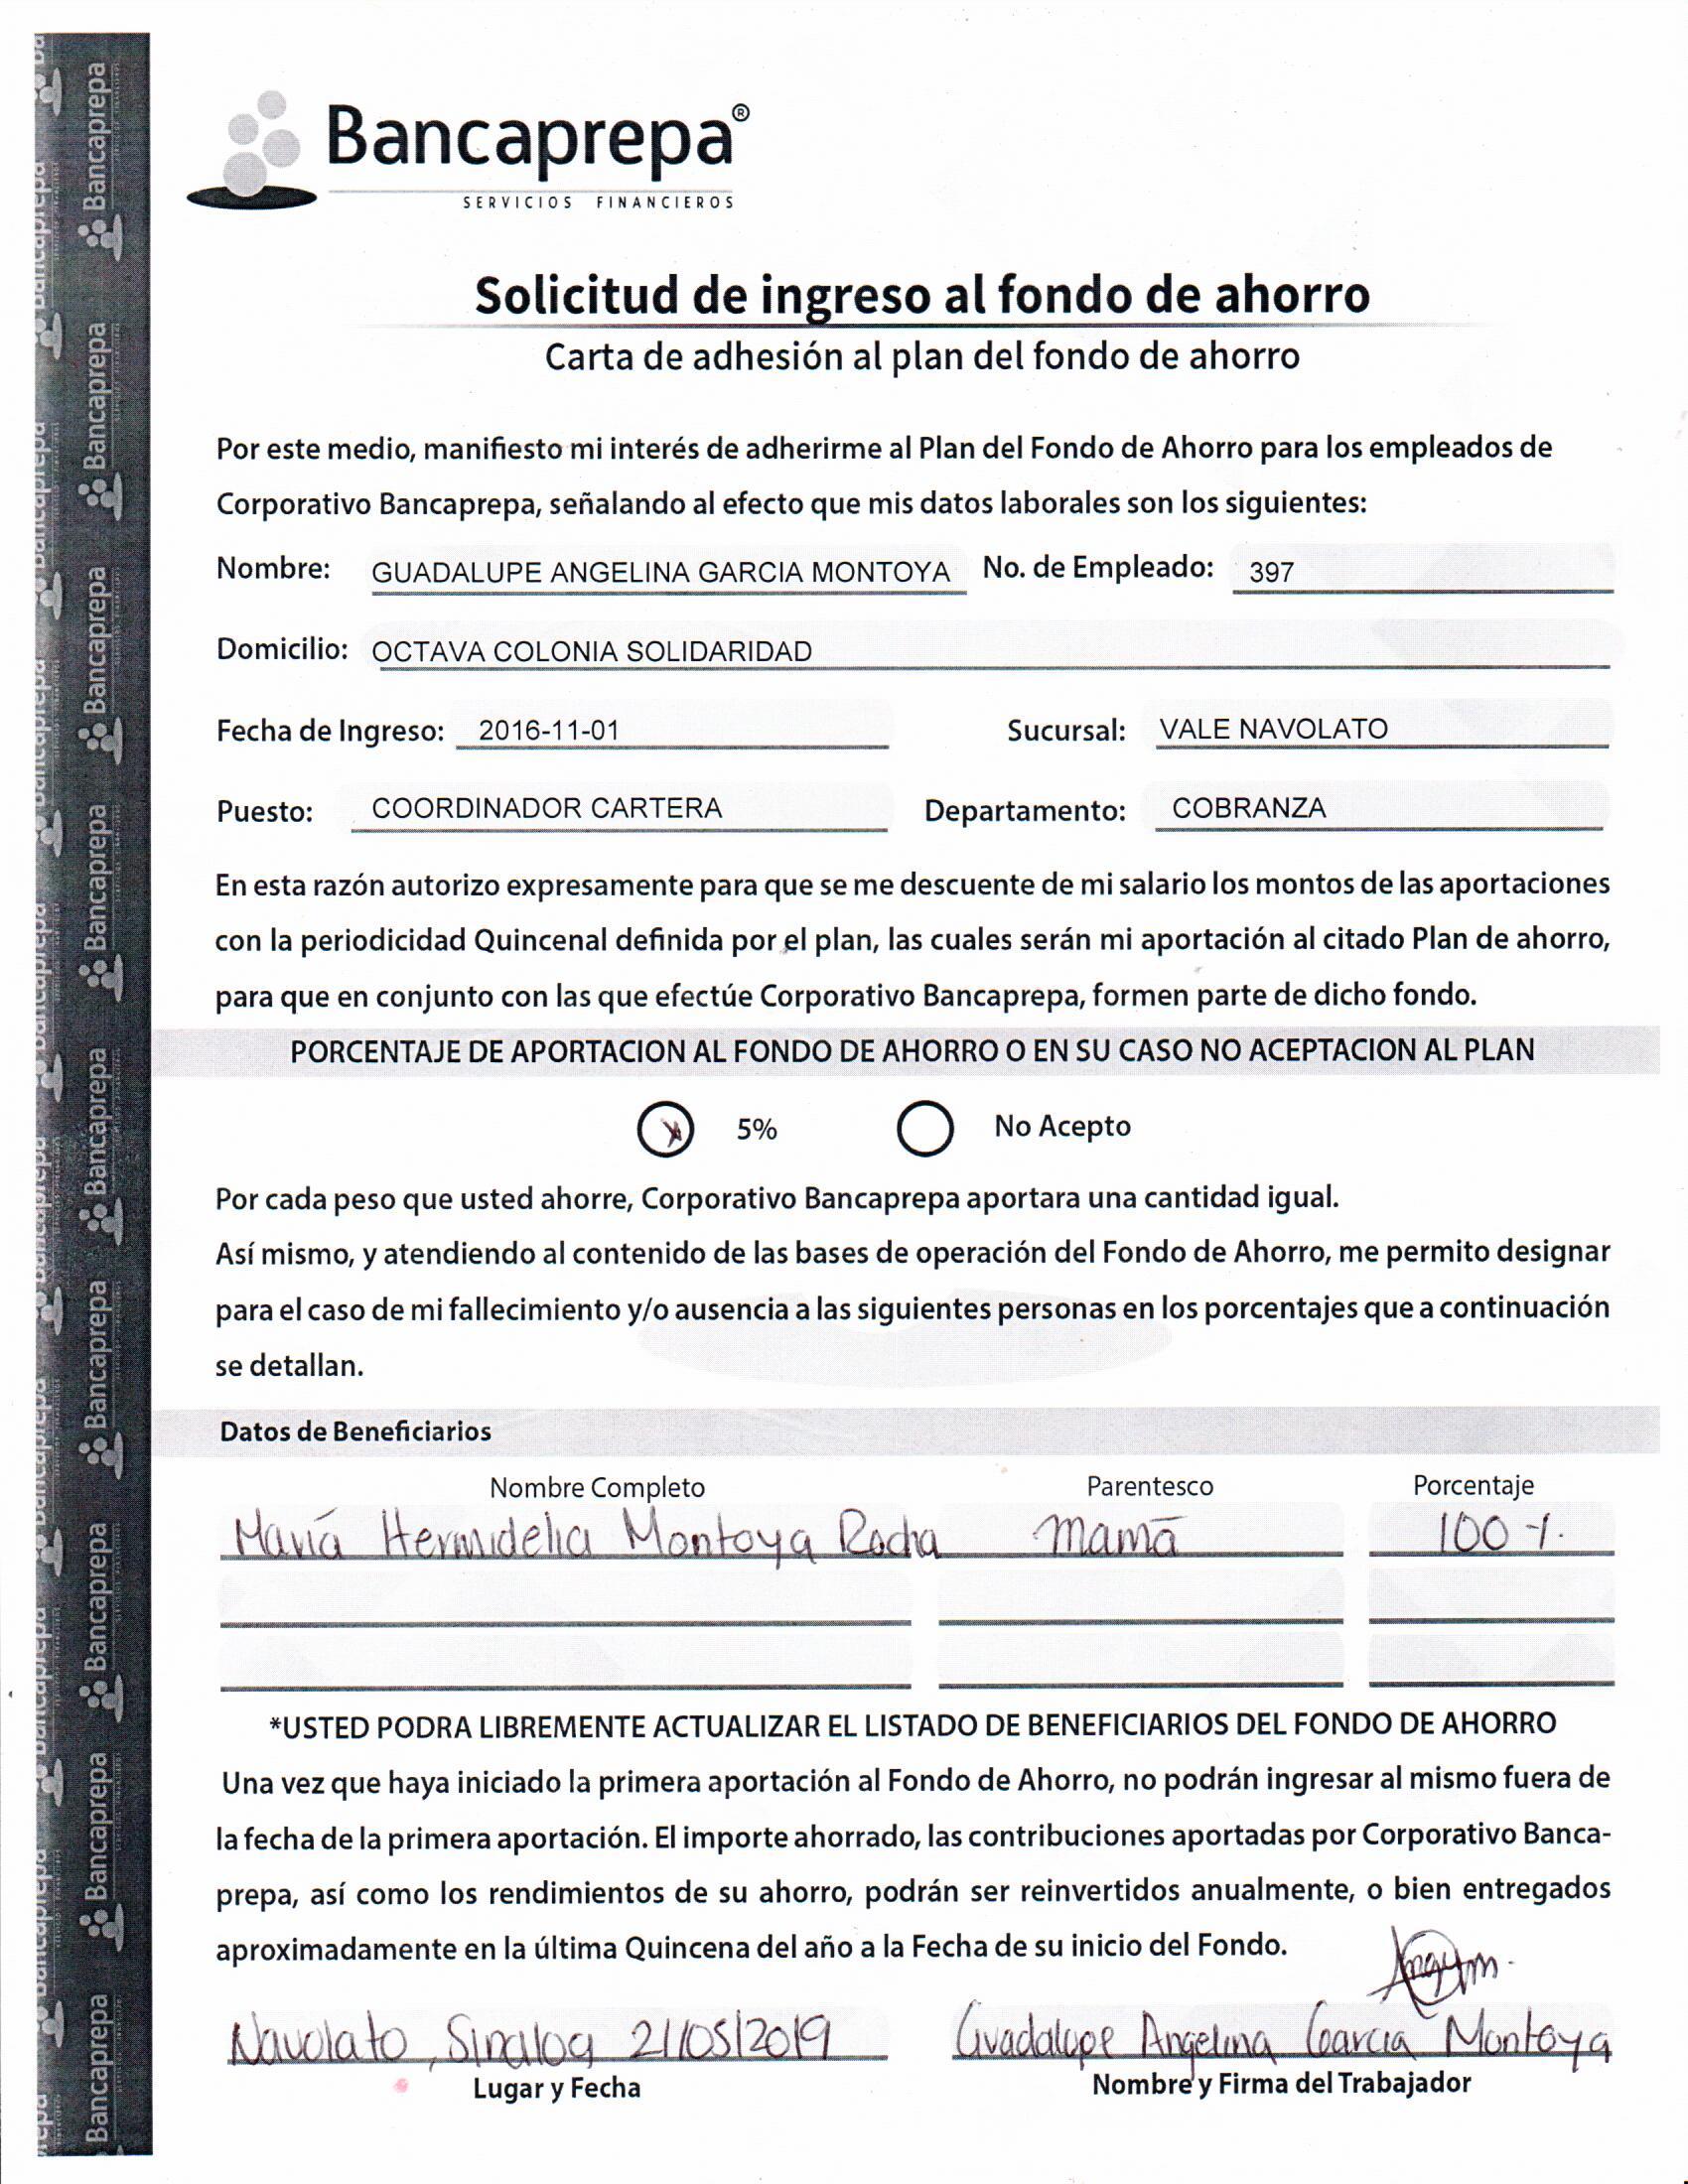 Bancaprepa®
SERVICIOS FINANCIEROS
Solicitud de ingreso al fondo de ahorro
Carta de adhesión al plan del fondo de ahorro
Por este medio, manifiesto mi interés de adherirme al Plan del Fondo de Ahorro para los empleados de
Corporativo Bancaprepa, señalando al efecto que mis datos laborales son los siguientes:
Nombre: GUADALUPE ANGELINA GARCIA MONTOYA No. de Empleado: 397
Domicilio: OCTAVA COLONIA SOLIDARIDAD
Fecha de Ingreso: 2016-11-01 Sucursal: VALE NAVOLATO
Puesto: COORDINADOR CARTERA Departamento: COBRANZA
En esta razón autorizo expresamente para que se me descuente de mi salario los montos de las aportaciones
con la periodicidad Quincenal definida por el plan, las cuales serán mi aportación al citado Plan de ahorro,
para que en conjunto con las que efectúe Corporativo Bancaprepa, formen parte de dicho fondo.
PORCENTAJE DE APORTACION AL FONDO DE AHORRO O EN SU CASO NO ACEPTACION AL PLAN
x 5% No Acepto
Por cada peso que usted ahorre, Corporativo Bancaprepa aportara una cantidad igual.
Así mismo, y atendiendo al contenido de las bases de operación del Fondo de Ahorro, me permito designar
para el caso de mi fallecimiento y/o ausencia a las siguientes personas en los porcentajes que a continuación
se detallan.
Datos de Beneficiarios
Nombre Completo Parentesco Porcentaje
María Hermidelia Montoya Rocha mamá 100 %.
*USTED PODRA LIBREMENTE ACTUALIZAR EL LISTADO DE BENEFICIARIOS DEL FONDO DE AHORRO
Una vez que haya iniciado la primera aportación al Fondo de Ahorro, no podrán ingresar al mismo fuera de
la fecha de la primera aportación. El importe ahorrado, las contribuciones aportadas por Corporativo Banca-
prepa, así como los rendimientos de su ahorro, podrán ser reinvertidos anualmente, o bien entregados
aproximadamente en la última Quincena del año a la Fecha de su inicio del Fondo.
Navolato, Sinaloa 21/05/2019 Guadalupe Angelina García Montoya
Lugar y Fecha Nombre y Firma del Trabajador